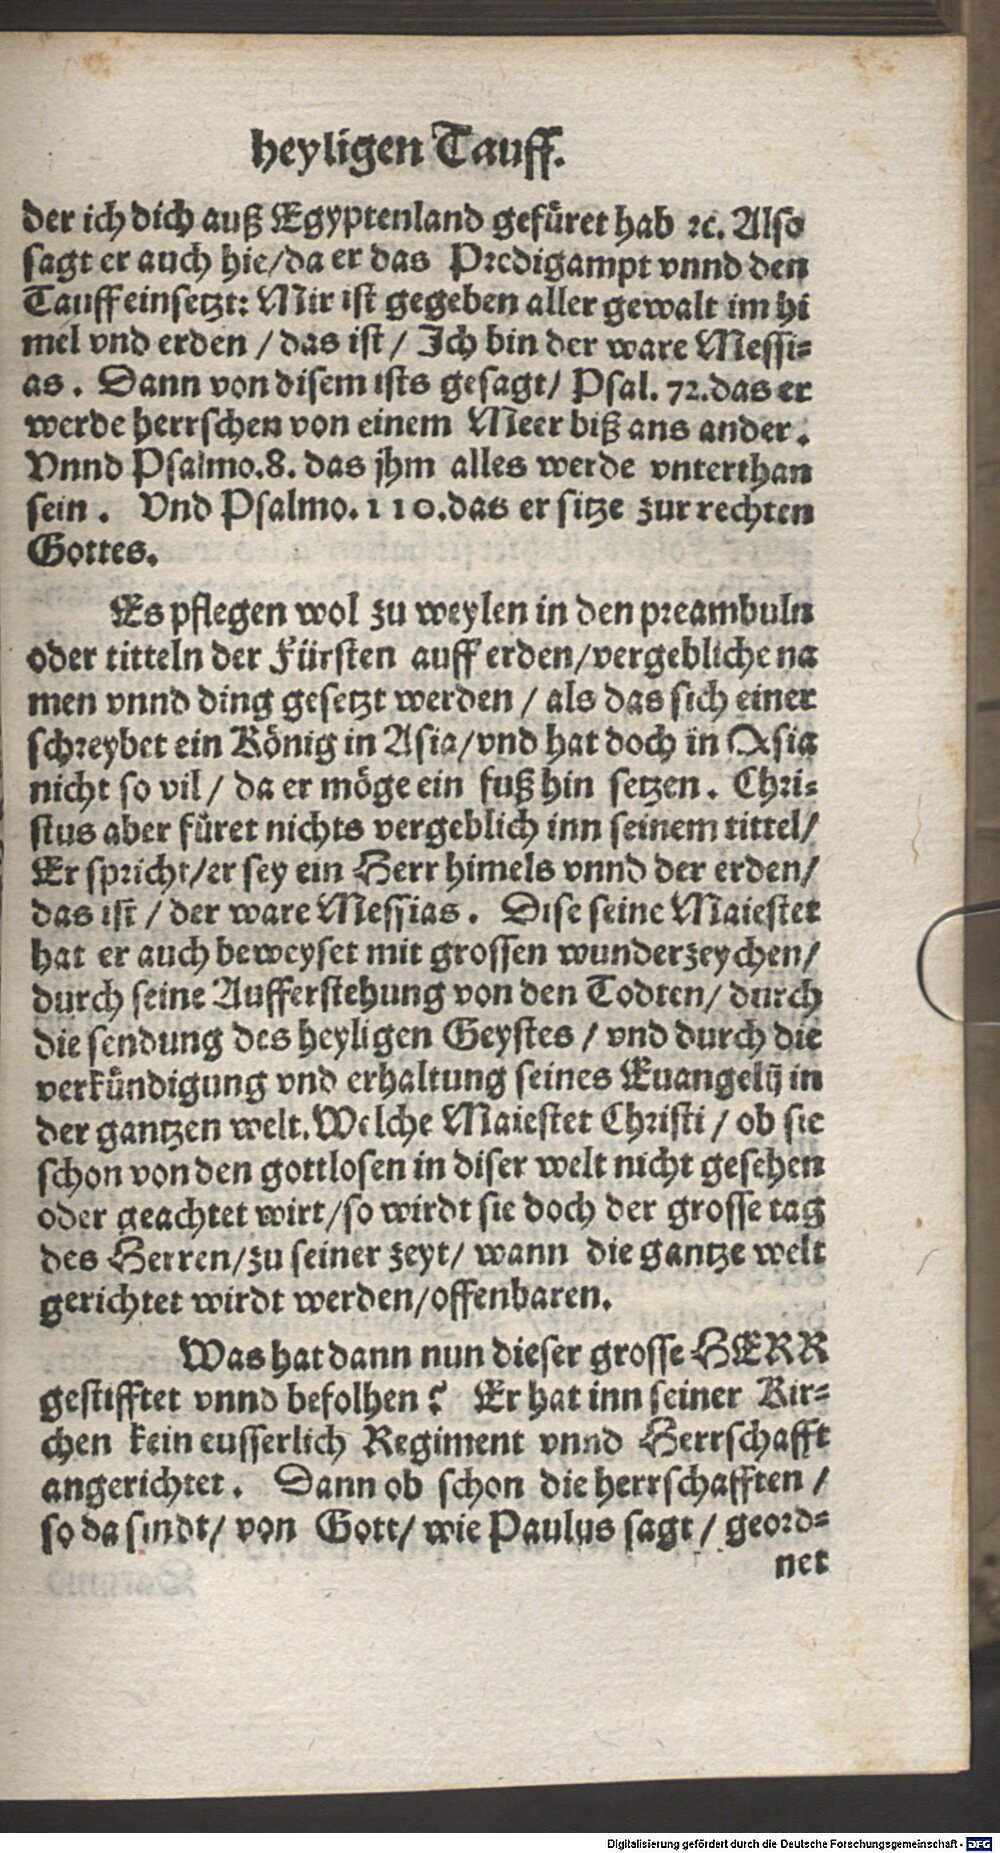 heyligen Tauff.
der ich dich auß Egyptenland gefüret hab ꝛc. Also
sagt er auch hie/da er das Predigampt vnnd den
Tauff einsetzt: Mir ist gegeben aller gewalt im hi
mel vnd erden / das ist / Ich bin der ware Messi-
as. Dann von disem ists gesagt/ Psal. 72. das er
werde herrschen von einem Meer biß ans ander.
Vnnd Psalmo. 8. das jhm alles werde vnterthan
sein. Vnd Psalmo. 110. das er sitze zur rechten
Gottes.
Es pflegen wol zu weylen in den preambuln
oder titteln der Fürsten auff erden/vergebliche na
men vnnd ding gesetzt werden / als das sich einer
schreybet ein König in Asia/vnd hat doch in Asia
nicht so vil / da er möge ein fuß hin setzen. Chri-
stus aber füret nichts vergeblich inn seinem tittel/
Er spricht/er sey ein Herr himels vnnd der erden/
das ist / der ware Messias. Dise seine Maiestet
hat er auch beweyset mit grossen wunderzeychen/
durch seine Aufferstehung von den Todten/ durch
die sendung des heyligen Geystes / vnd durch die
verkündigung vnd erhaltung seines Euangelij in
der gantzen welt. Welche Maiestet Christi / ob sie
schon von den gottlosen in diser welt nicht gesehen
oder geachtet wirt/so wirdt sie doch der grosse tag
des Herren/zu seiner zeyt/ wann die gantze welt
gerichtet wirdt werden/offenbaren.
Was hat dann nun dieser grosse HERR
gestifftet vnnd befolhen? Er hat inn seiner Kir-
chen kein eusserlich Regiment vnnd Herrschafft
angerichtet. Dann ob schon die herrschafften /
so da sindt/ von Gott/ wie Paulus sagt / geord-
net
Digitalisierung gefördert durch die Deutsche Forschungsgemeinschaft - DFG